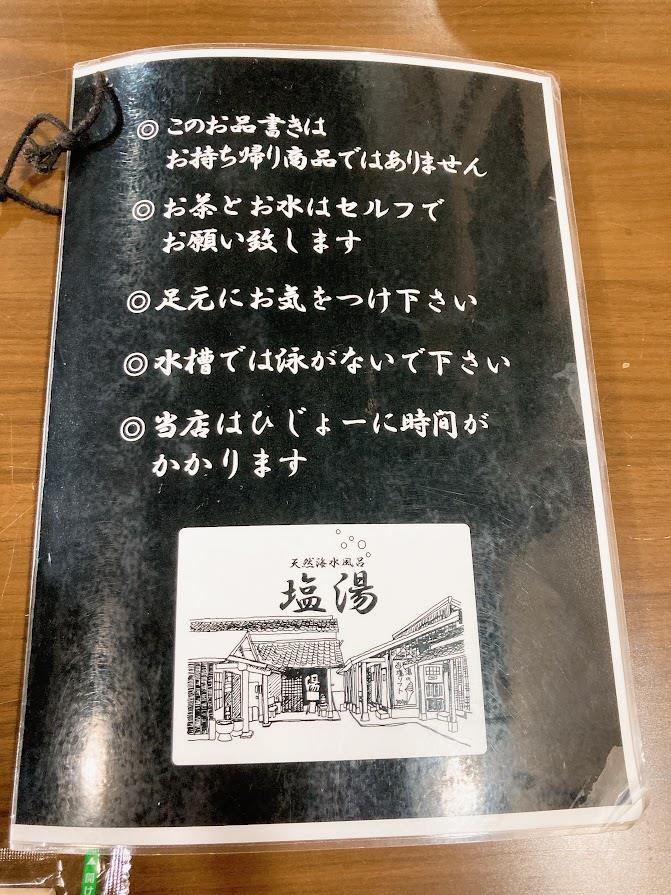 ◎このお品書きは
お持ち帰り商品ではありません
◎お茶とお水はセルフで
お願い致します
◎足元にお気をつけ下さい
◎水槽では泳がないで下さい
◎当店はひじょーに時間が
かかります
天然海水風呂
塩湯
湯
開け